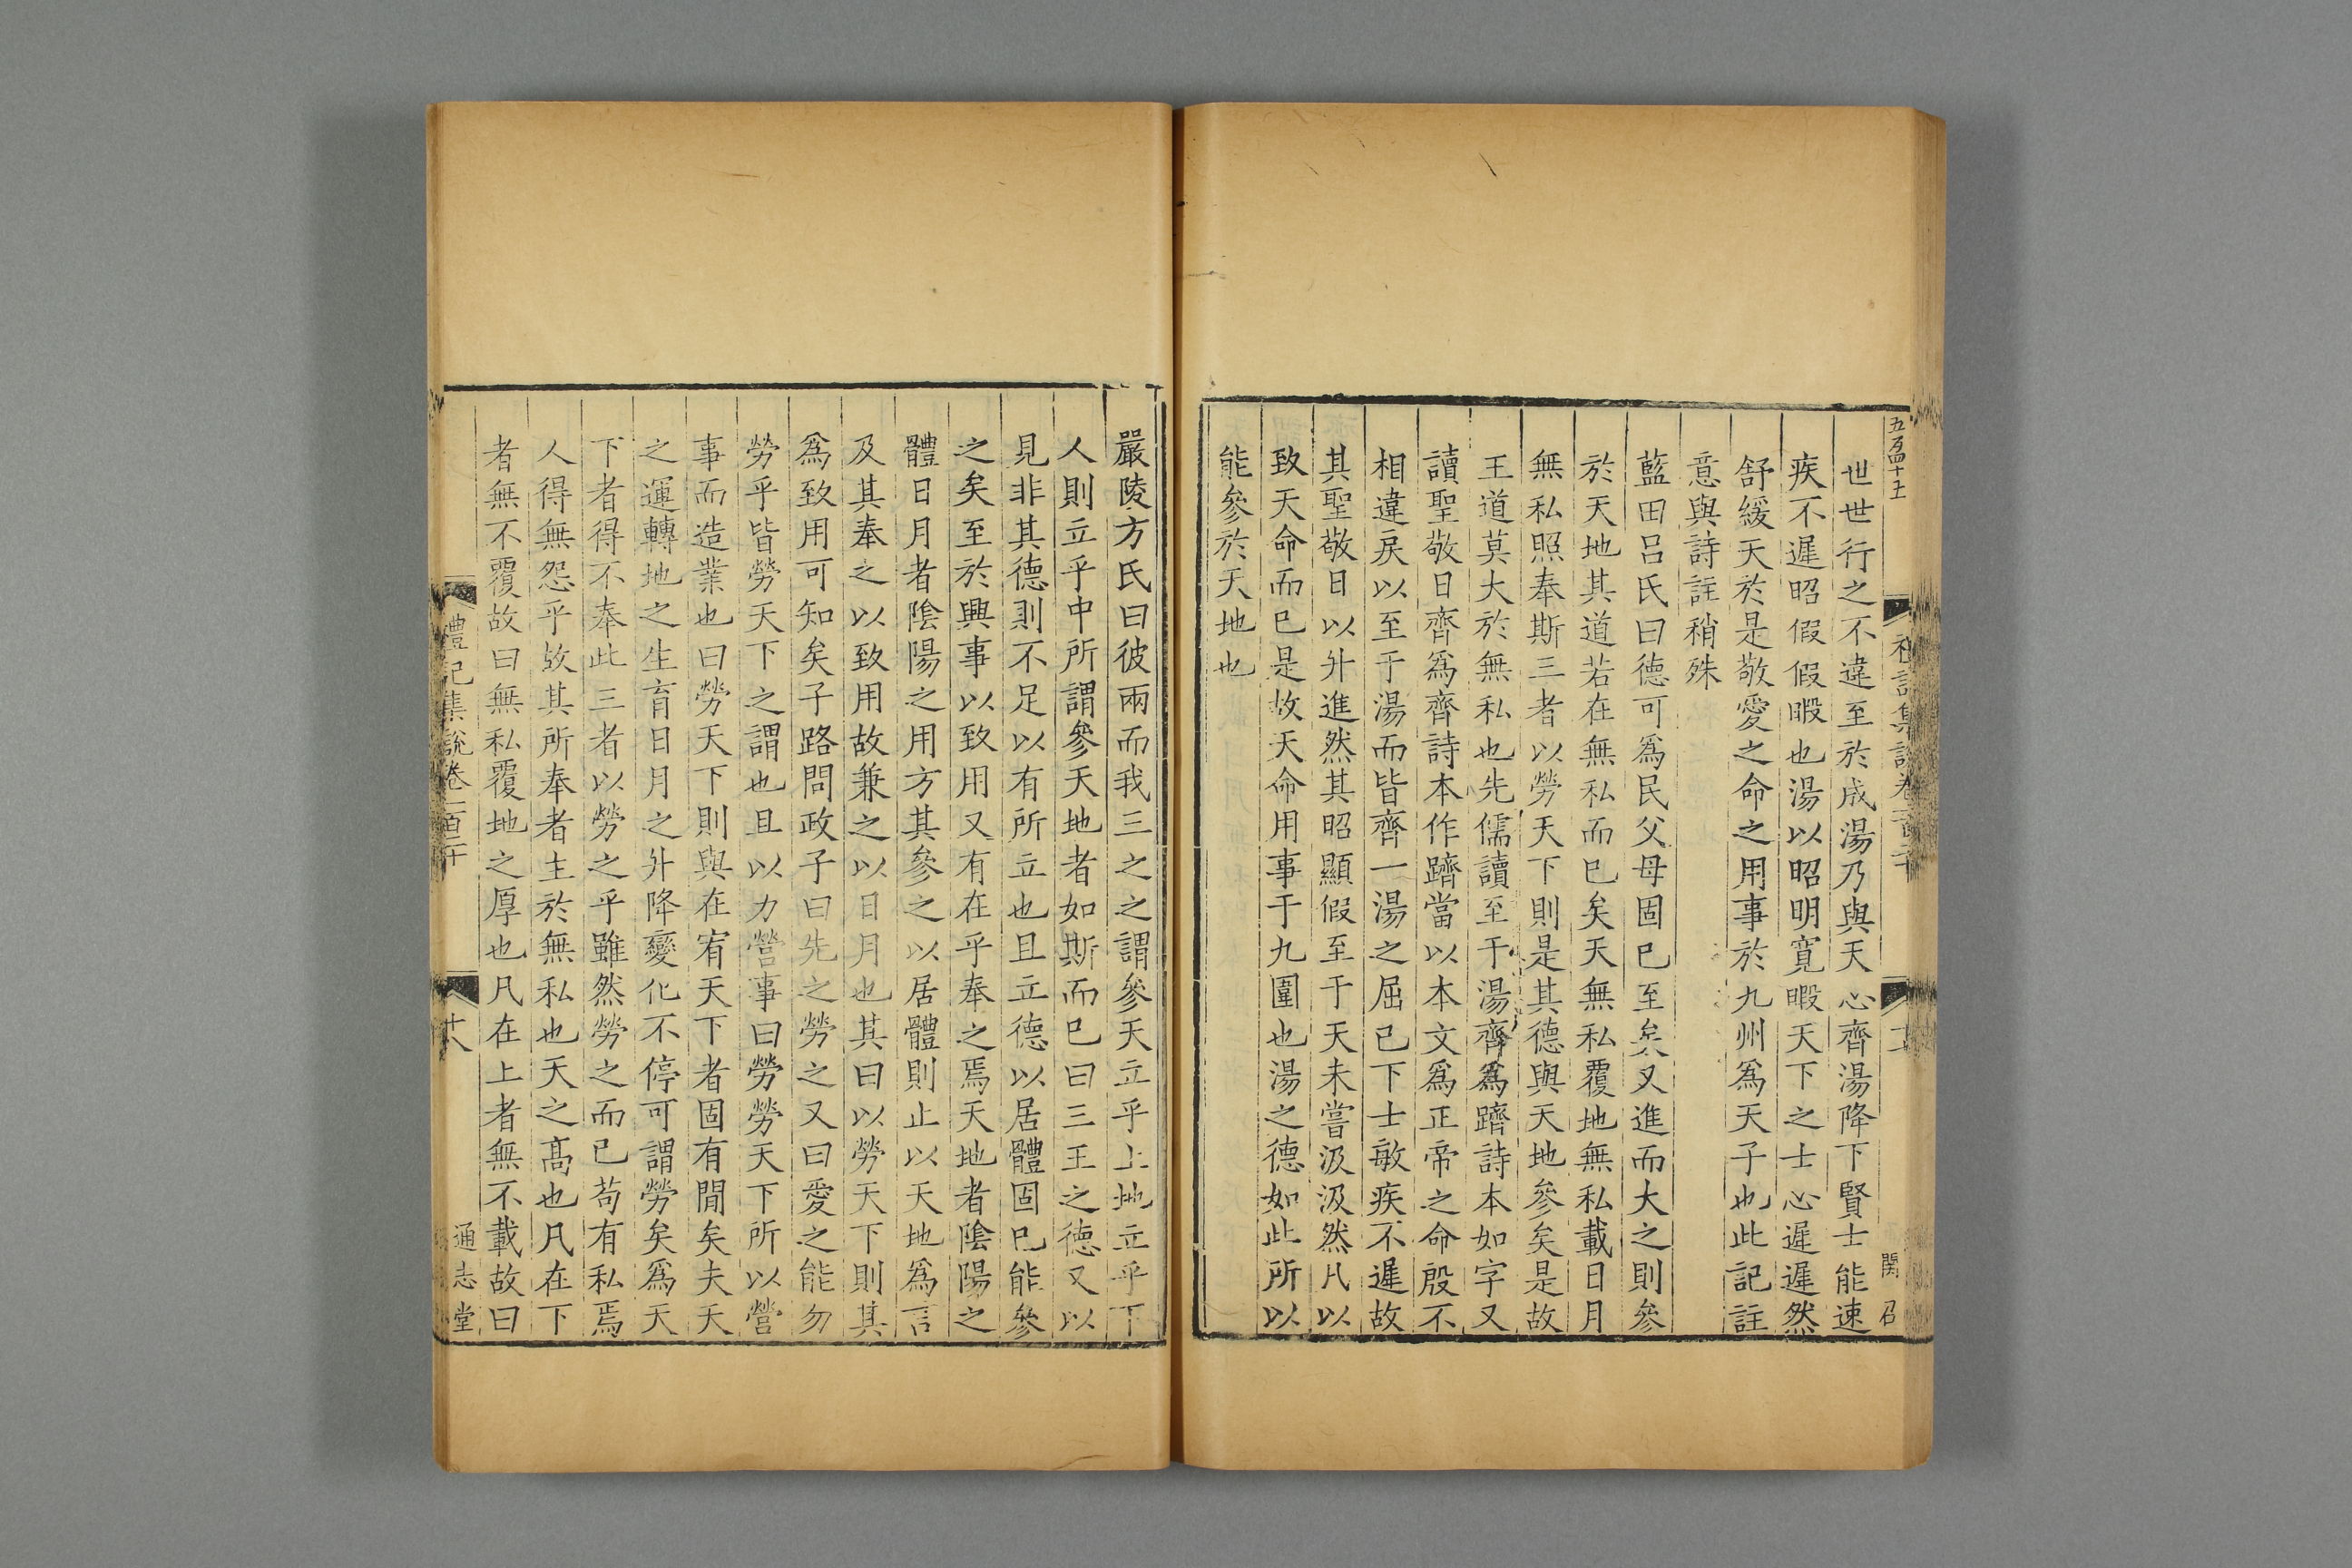 世世行之不違至於成湯乃與天心齊湯降下賢士能速
疾不遲昭假假暇也湯以昭明寬暇天下之士心遲遲然
舒緩天於是敬愛之命之用事於九州爲天子也此記註
意與詩註稍殊
藍田呂氏曰德可爲民父母固已至矣又進而大之則參
於天地其道若在無私而已矣天無私覆地無私載日月
無私照奉斯三者以勞天下則是其德與天地參矣是故
王道莫大於無私也先儒讀至于湯齊爲躋詩本如字又
讀聖敬日齊爲齊詩本作躋當以本文爲正帝之命殷不
相違戾以至于湯而皆齊一湯之屈己下士敏疾不遲故
其聖敬日以升進然其昭顯假至于天未嘗汲汲然凡以
致天命而已是故天命用事于九圍也湯之德如此所以
能參於天地也
嚴陵方氏曰彼兩而我三之之謂參天立乎上地立乎下
人則立乎中所謂參天地者如斯而已曰三王之德又以
見非其德則不足以有所立也且立德以居體固已能參
之矣至於興事以致用又有在乎奉之焉天地者陰陽之
體日月者陰陽之用方其參之以居體則止以天地爲言
及其奉之以致用故兼之以日月也其曰以勞天下則其
爲致用可知矣子路問政子曰先之勞之又曰愛之能勿
勞乎皆勞天下之謂也且以力營事曰勞勞天下所以營
事而造業也曰勞天下則與在宥天下者固有閒矣夫天
之運轉地之生育日月之升降變化不停可謂勞矣爲天
下者得不奉此三者以勞之乎雖然勞之而已苟有私焉
人得無怨乎故其所奉者主於無私也天之高也凡在下
者無不覆故曰無私覆地之厚也凡在上者無不載故曰
禮記集說卷一百二十
十八
通志堂